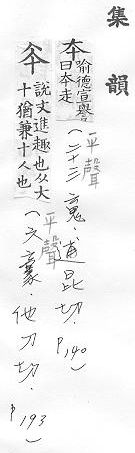 集韻
本 喻德宣譽
曰本走
平聲
(二十三魂．逋昆切．P140)
夲 說文進趣也从大
十猶兼十人也
平聲
(六豪．他刀切．P193)